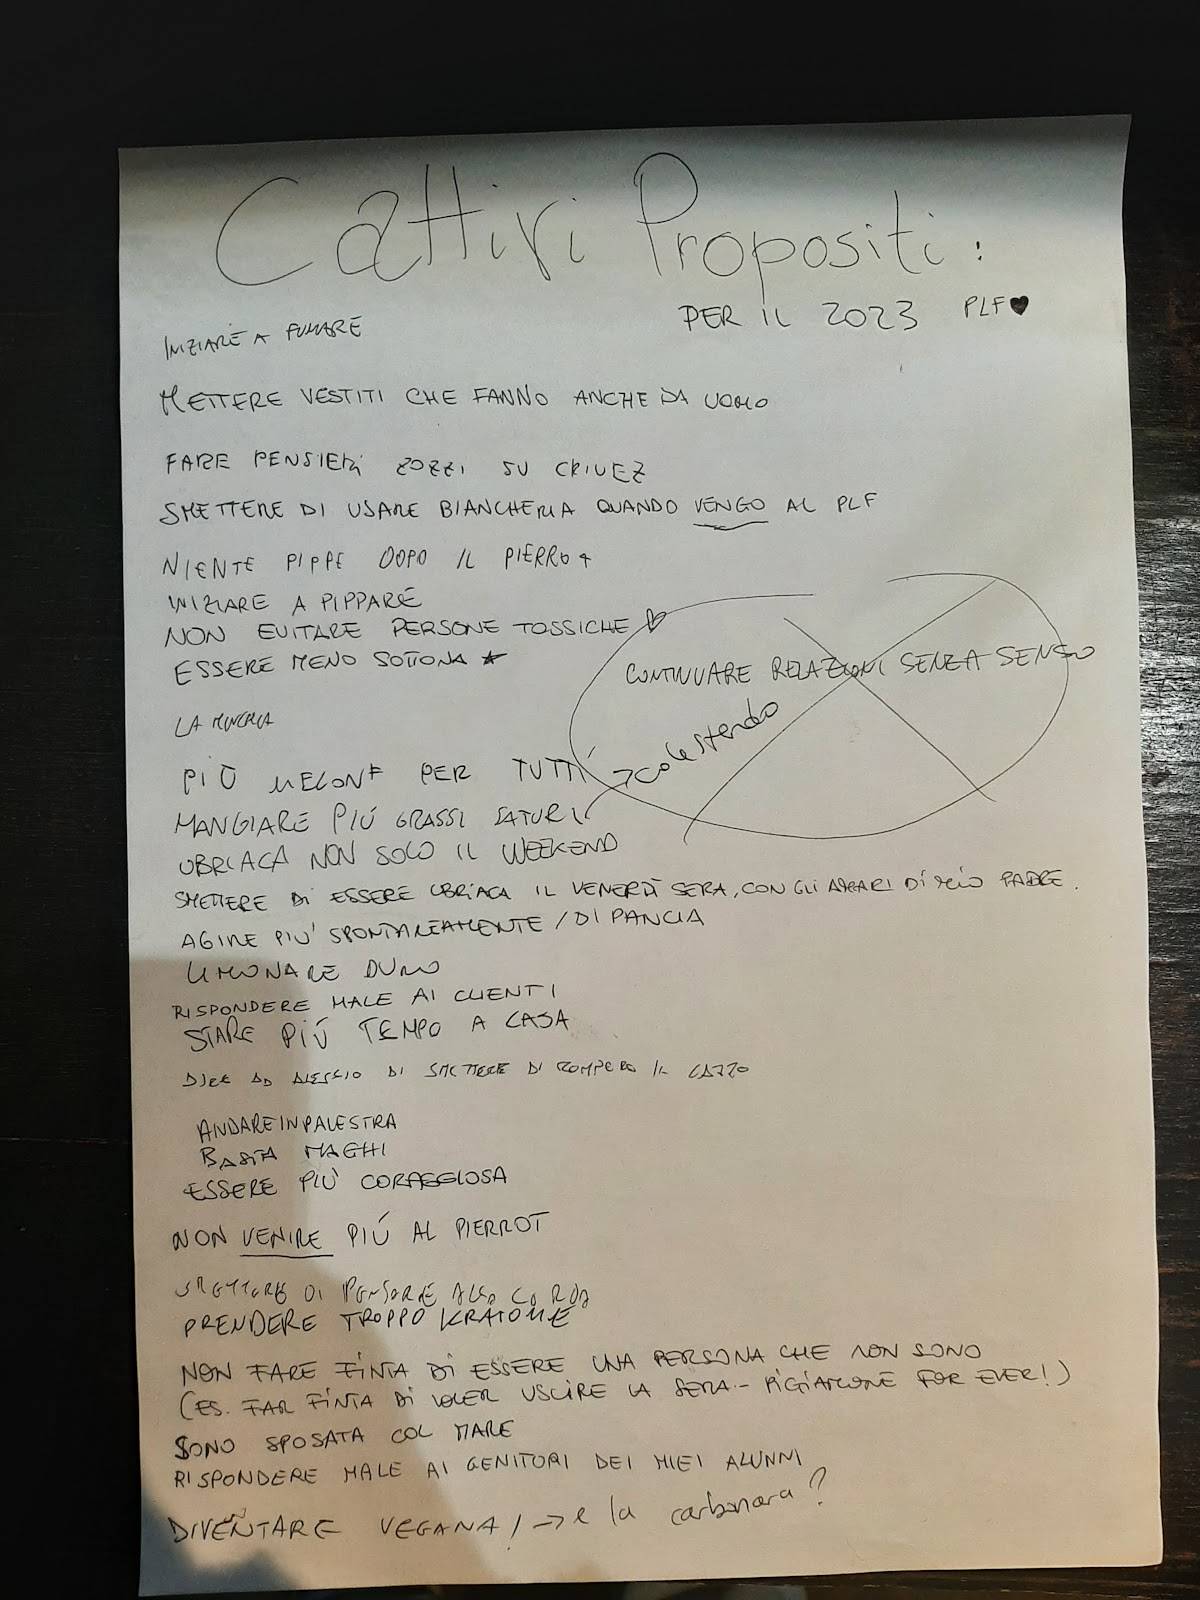 Cattivi Propositi:
PER IL 2023 PLF♥
INIZIARE A FUMARE
METTERE VESTITI CHE FANNO ANCHE DA UOMO
FARE PENSIERI ZOZZI SU
SMETTERE DI USARE BIANCHERIA QUANDO VENGO AL PLF
NIENTE PIPPE DOPO IL PIERROT
INIZIARE A PIPPARE
NON EVITARE PERSONE TOSSICHE ♡
ESSERE MENO SOTTONA ★
CONTINUARE RELAZIONI SENZA SENSO
LA
PIÙ MELONE PER TUTTI
→
MANGIARE PIÚ GRASSI SATURI
UBRIACA NON SOLO IL WEEKEND
SMETTERE DI ESSERE UBRIACA IL VENERDÌ SERA, CON GLI AMARI DI MIO PADRE.
AGIRE PIU' SPONTANEAMENTE / DI PANCIA
LIMONARE DURO
RISPONDERE MALE AI CLIENTI
STARE PIÚ TEMPO A CASA
DIRE AD ALESSIO DI SMETTERE DI ROMPERE IL CAZZO
ANDARE IN PALESTRA
BASTA MAGHI
ESSERE PIU' CORAGGIOSA
NON VENIRE PIÚ AL PIERROT
SMETTERE DI PENSARE ALLA CORDA
PRENDERE TROPPO
NON FARE FINTA DI ESSERE UNA PERSONA CHE NON SONO
(ES. FAR FINTA DI VOLER USCIRE LA SERA... PIGIAMONE FOR EVER!)
SONO SPOSATA COL MARE
RISPONDERE MALE AI GENITORI DEI MIEI ALUNNI
DIVENTARE VEGANA! → e la carbonara?